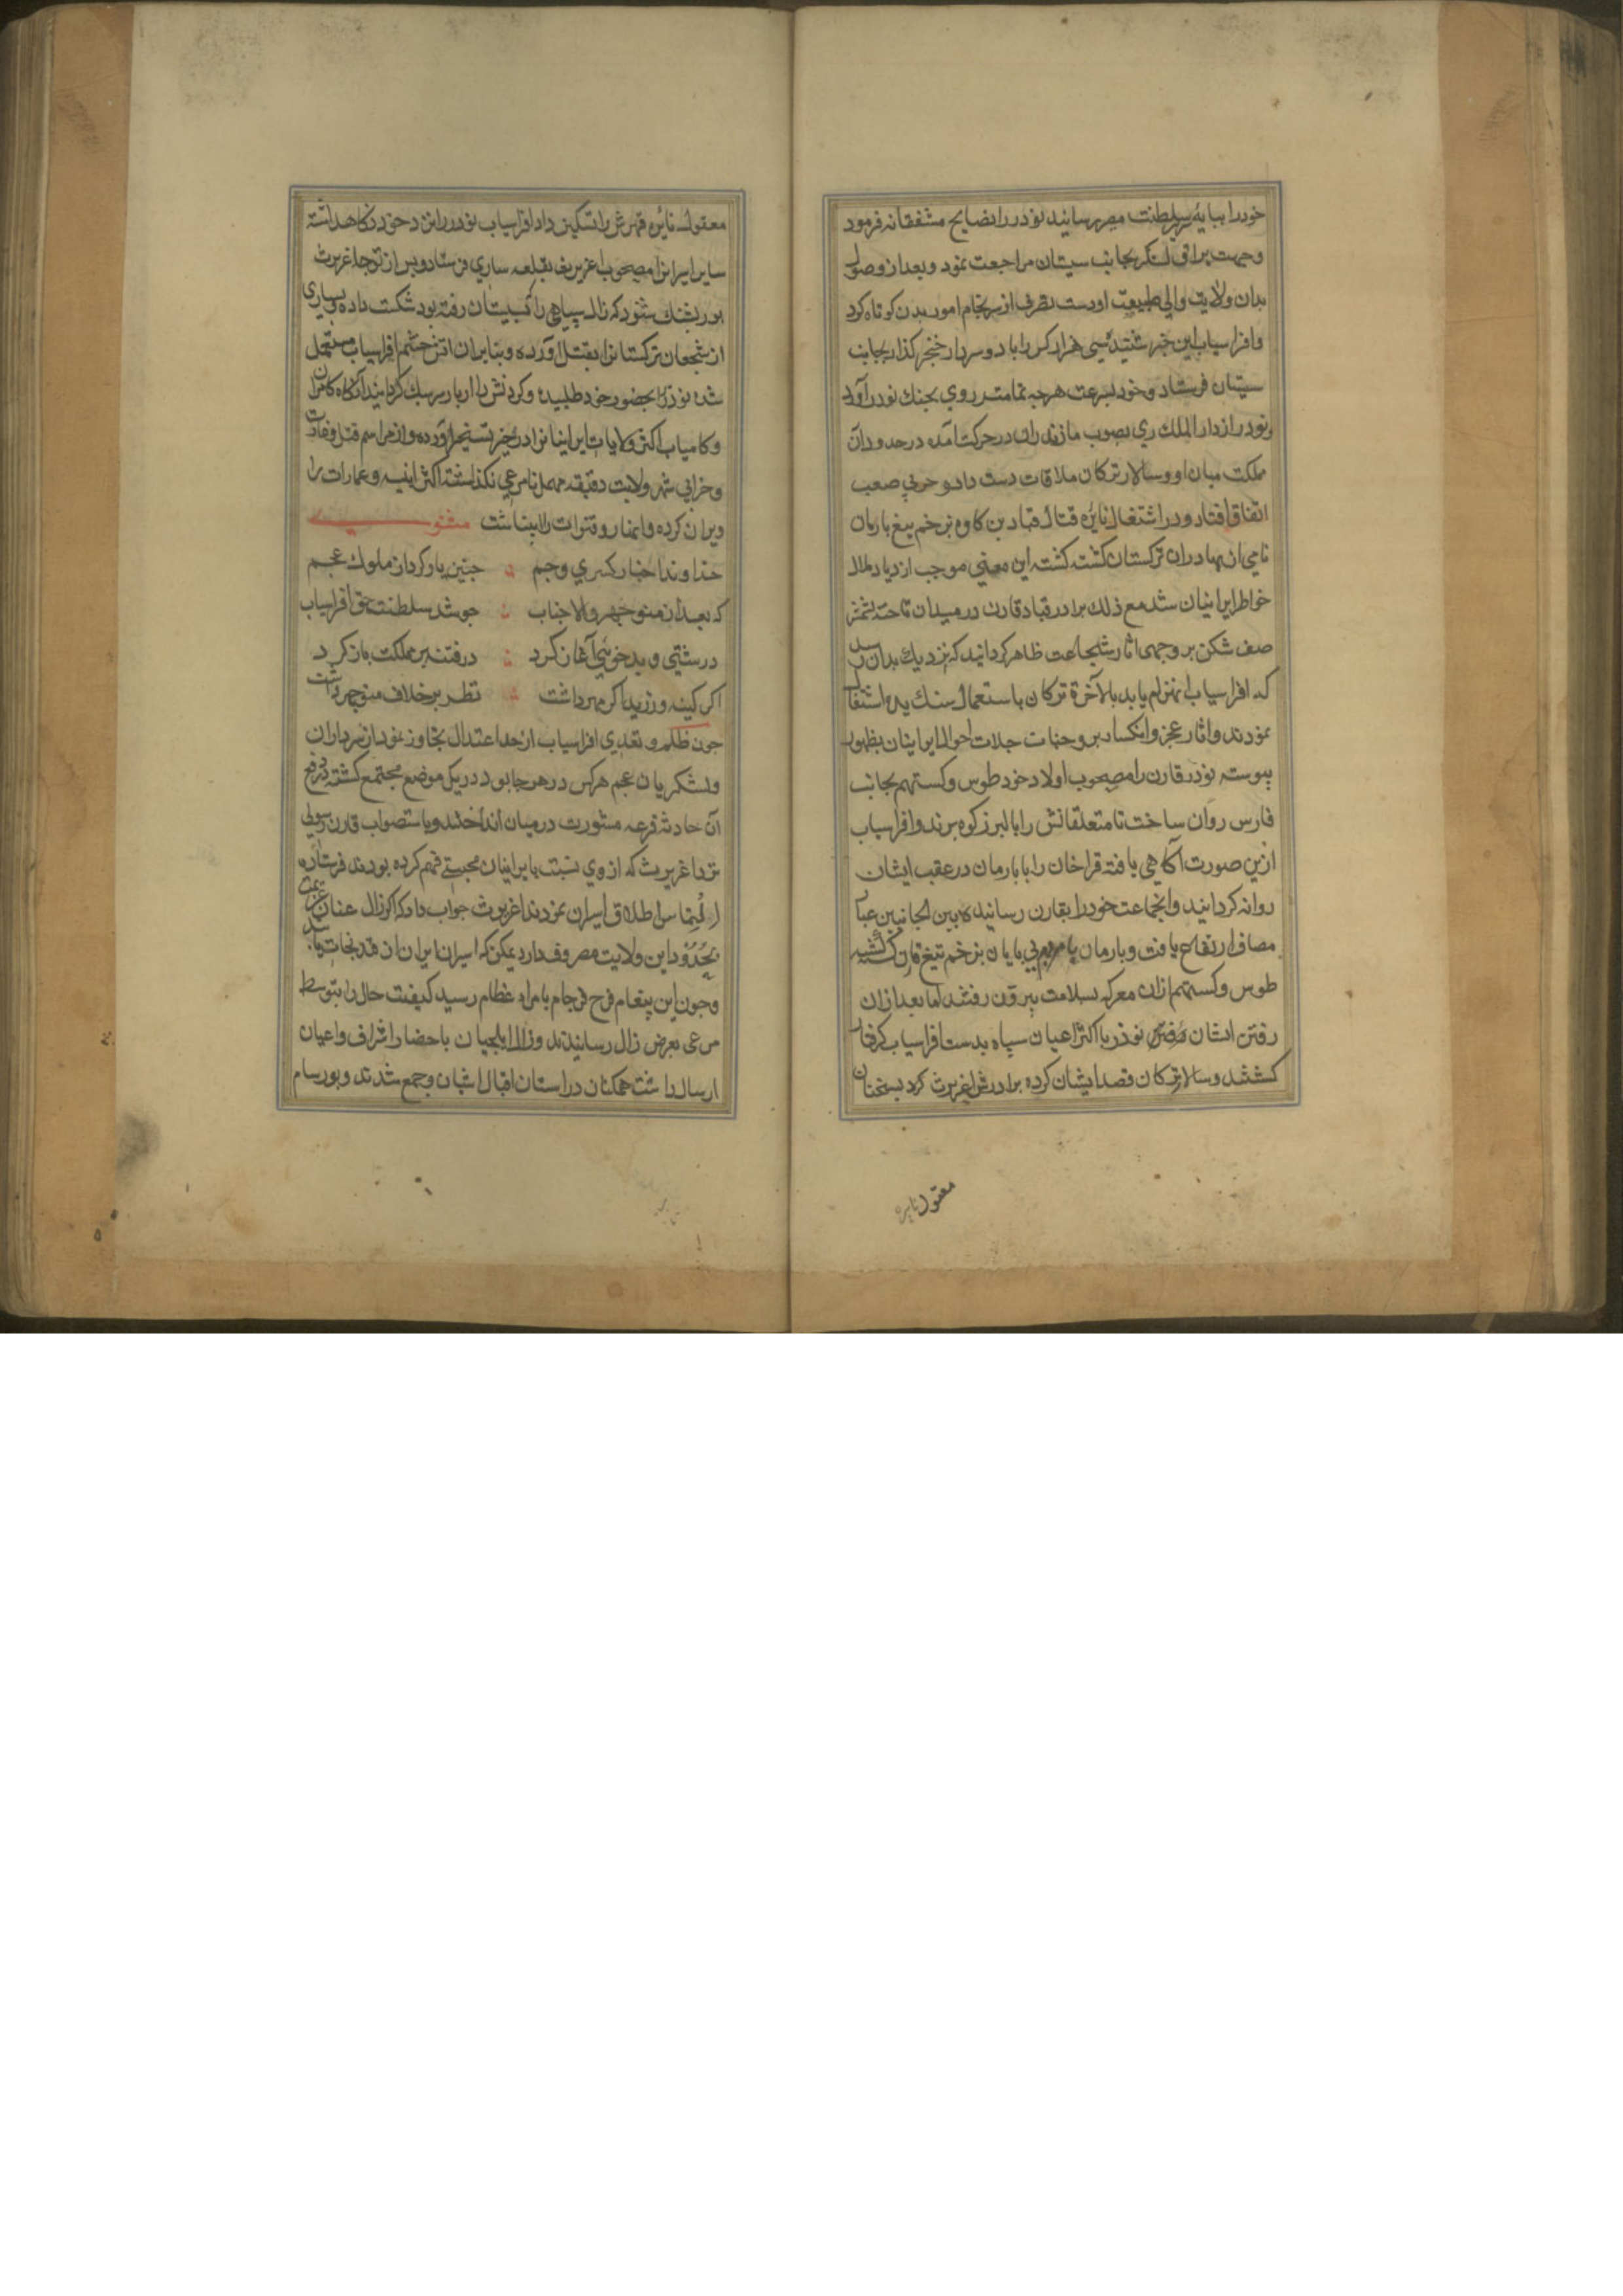 خودرا بپایهٔ سریر سلطنت مصیر رسانید نوذر را نصایح مشفقانه فرمود
وجهت یراق لشکر بجانب سیستان مراجعت نمود وبعد از وصول
بدان ولایت والی طبیعت اودست تصرف از سرنجام امور بدن کوتاه کرد
وافراسیاب این خبر شنیده سی هزار کس را باد وسردار خنجر کذار بجانب
سیستان فرستاد وخود بسرعت هرچه تمامتر روی بجنك نوذر آورد
ونوذر از دار الملك ری بصوب مازندران در حرکت آمده در حدود آن
مملکت میان او وسالار ترکان ملاقات دست داد و حربی صعب
اتفاق افتاد و در اشتغال نایرهٔ قتال قباد بن کاوه بزخم تیغ بارمان
نامی از بهادران ترکستان کشته کشت این معنی موجب ازدیاد ملال
خواطر ایرانیان شد مع ذلك برادر قباد قارن در میدان تاخته بشمشیر
صف شکن بر وجهی اثار شجاعت ظاهر کردانید که نزدیك بدان رسید
که افراسیاب انهزام یابد بالآخرة ترکان باستعمال سنك یده اشتغال
نمودند واثار عجز وانکسار بر وجنات حالات احوال ایرانیان بظهور
پیوسته نوذر قارن را مصحوب اولاد خود طوس وکستهم بجانب
فارس روان ساخت تا متعلقانش را بالبرز کوه برند وافراسیاب
ازین صورت آکاهی یافته قراخان را با بارمان در عقب ایشان
روانه کردانید وانجماعت خودرا بقارن رسانیده بین الجانبین غبار
مصاف ارتفاع یافت وبارمان با مردم بی پایان بزخم تیغ قارن کشته شد
طوس وکستهم ازان معرکه بسلامت بیرون رفتند اما بعد ازان
رفتن ایشان نوذر با اکثر اعیان سپاه بدست افراسیاب کرفتار
کشتند وسالار ترکان قصد ایشان کرده برادرش اغریرث کرد بسخنان
معقول نایره
معقول نایرهٔ قهرش را تسکین داد افراسیاب نوذر را نزد خود نکاهداشته
سایر اسیرانرا مصحوب اغریرث بقلعه ساری فرستاد وپس از توجه اغریرث
پور پشنك شنود که زال سپاهی را که بسیستان رفته بود شکست داده وبسیاری
از شجعان ترکستانرا بقتل آورده وبنابران اتش خشم افراسیاب مشتعل
شده نوذر را بحضور خود طلبیده وکردنش را از بار سر سبك کردانید آنکاه کامران
وکامیاب اکثر ولایات ایرانیانرا در حیز تسخیر آورده واز مراسم قتل وغارت
وخرابی شهر ولایت دقیقه مهمل نامرعی نکذاشت اکثر ابنیه وعمارات را
ویران کرده وانهار وقنوات را بینباشت مثنوی
خداوند اخبار کسری وجم چنین یاد کرد از ملوك عجم
که بعد از منوچهر والا جناب چو شد سلطنت حق افراسیاب
درشتی وبدخوئی آغاز کرد در فتنه بر مملکت باز کرد
اکر کینه ورزید اکر مهر داشت نظر بر خلاف منوچهر داشت
چون ظلم وتعدی افراسیاب از حد اعتدال تجاوز نمود از سرداران
ولشکریان عجم هرکس در هر جا بود در یك موضع مجتمع کشته در دفع
آن حادثه قرعه مشورت در میان انداختند وباستصواب قارن رسولی
نزد اغریرث که از وی نسبت بایرانیان محبتی فهم کرده بودند فرستاده
التماس اطلاق اسیران نمودند اغریرث جواب داد که اکر زال عنان عزیمت
بحدود این ولایت مصروف دارد یمکن که اسیران ایران از قید نجات یابند
وچون این پیغام فرح فرجام بامراء عظام رسید کیفیت حال را بتوسط
مرعی بعرض زال رسانیدند وزال ایلچیان باحضار اشراف واعیان
ارسال داشت همکنان در استان اقبال اشیان وجمع شدند وپور سام